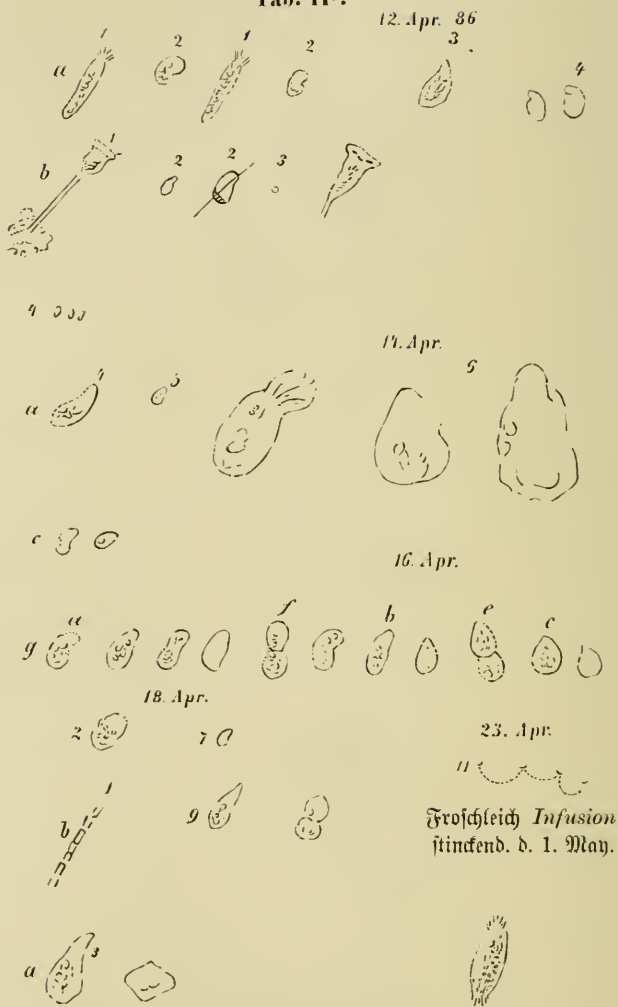 Tab. IV.
12. Apr. 86
1 2 1 2 3 4
a
1 2 2 3
b
4
14. Apr.
4 5 6
a
c
16. Apr.
a f b e c
g
18. Apr.
2 7
23. Apr.
11
1
b 9
Froschleich Infusion
stinckend. d. 1. May.
3
a